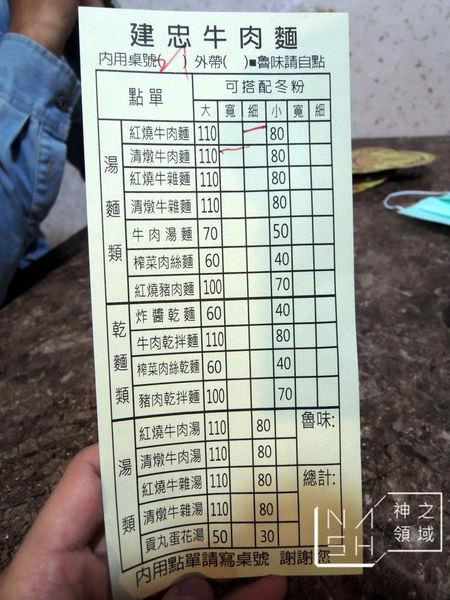 建忠牛肉麵
內用桌號( ) 外帶( )■魯味請自點
點單 可搭配冬粉
大 寬 細 小 寬 細
湯麵類
紅燒牛肉麵 110 80
清燉牛肉麵 110 80
紅燒牛雜麵 110 80
清燉牛雜麵 110 80
牛肉湯麵 70 50
榨菜肉絲麵 60 40
紅燒豬肉麵 100 70
乾麵類
炸醬乾麵 60 40
牛肉乾拌麵 110 80
榨菜肉絲乾麵 60 40
豬肉乾拌麵 100 70
湯類
紅燒牛肉湯 110 80 魯味:
清燉牛肉湯 110 80
紅燒牛雜湯 110 80 總計:
清燉牛雜湯 110 80
貢丸蛋花湯 50 30
內用點單請寫桌號 謝謝您
神之領域